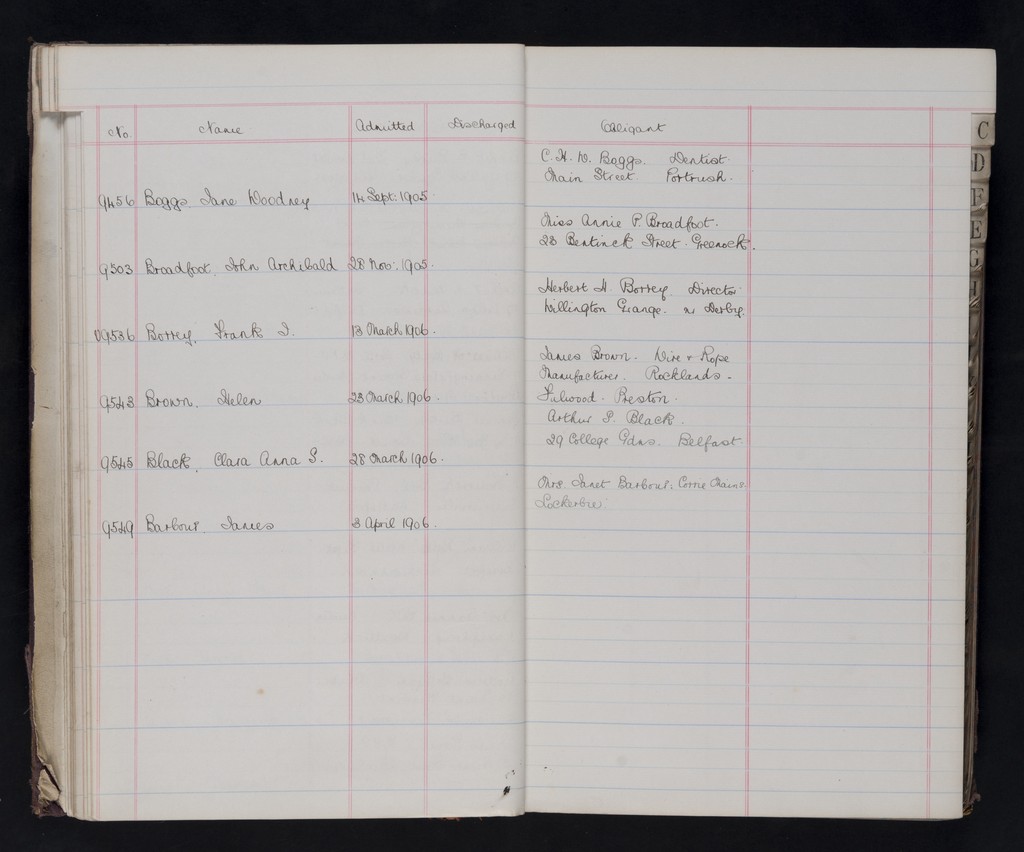 No. Name Admitted Discharged Obligant
C. H. W. Boggs. Dentist.
Main Street. Portrush.
9456 Boggs, Jane Woodney 14 Sept: 1905
Miss Annie P. Broadfoot.
28 Bentinck Street. Greenock.
9503 Broadfoot, John Archibald 28 Nov: 1905.
Herbert H. Borrey. Director
Willington Grange. nr Derby.
9536 Borrey, Frank 13 March 1906.
James Brown. Wire & Rope
Manufacturer. Rocklands.
Fulwood. Preston.
9543 Brown, Helen 23 March 1906.
Arthur S. Black.
29 College Gdns. Belfast.
9545 Black, Clara Anna S. 28 March 1906.
Mrs. Janet Barbour, Corrie Mains.
Lockerbie.
9549 Barbour, James 3 April 1906.
C
D
F
E
G
H